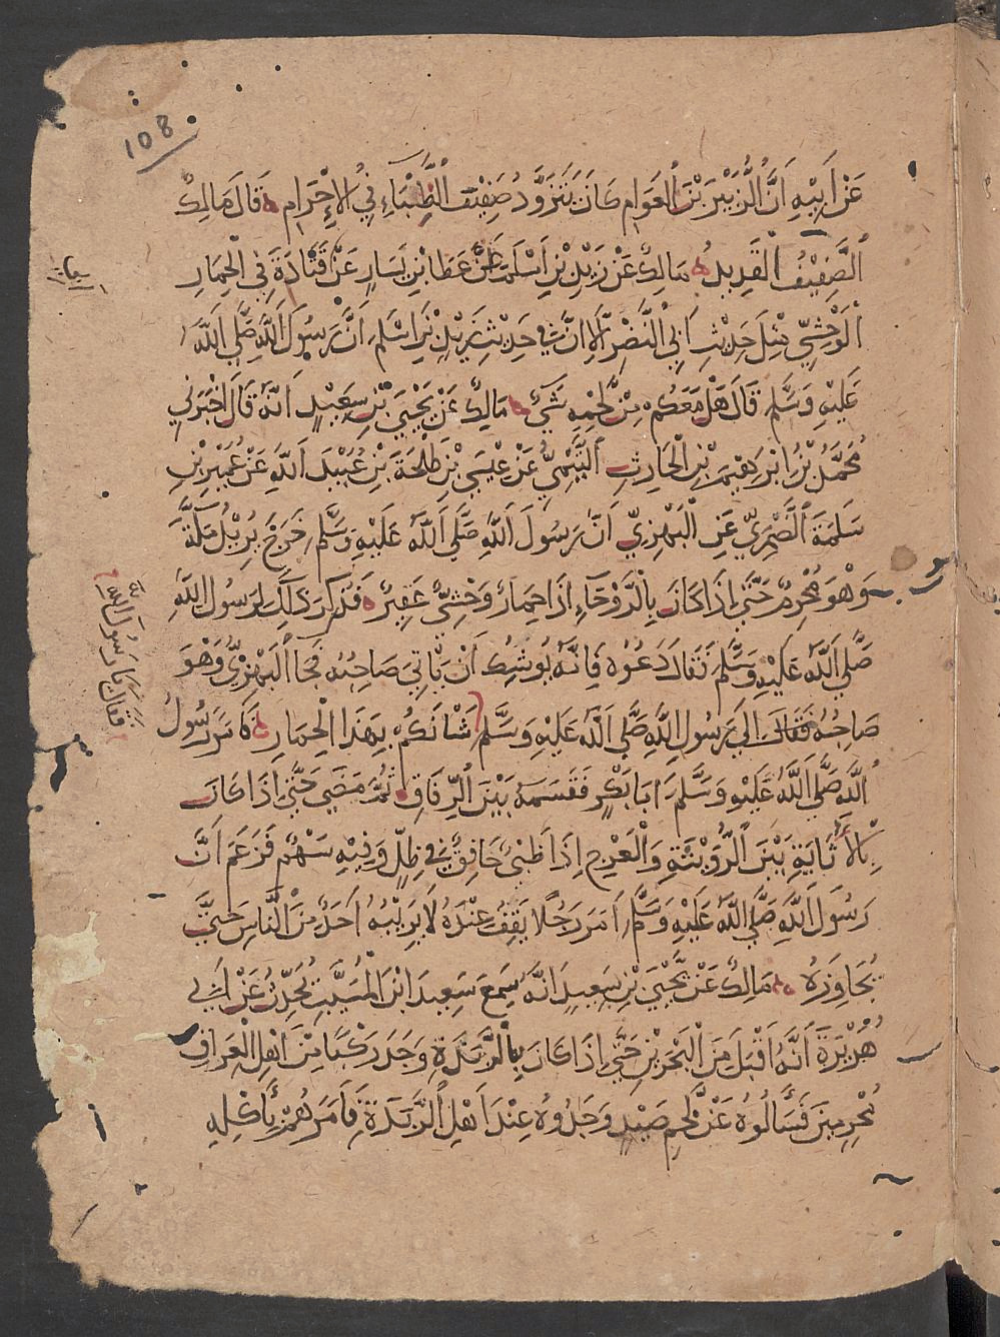 108
عَنْ اَبِيْهِ اَنَّ الزُّبَيْرَ بْنَ الْعَوَامِ كَانَ يَتَزَوَّدُ صَفِيْفَ الظِّبَاءِ فِيْ الاِحْرَامِ ه قَالَ مَالِكٌ
اَلصَّفِيْفُ الْقَدِيدُ ه مَالِكٌ عَنْ زَيْدِ بْنِ اَسْلَمَ عَنْ عَطَا بْنِ يَسَارٍ عَنْ قَتَادَةَ فِي الْحِمَارِ
اَلْوَحْشِيِّ مِثْلَ حَدِيْثِ اَبِي النَّضْرِ اِلَّا اَنَّ فِي حَدِيْثِ زَيْدِ بْنِ اَسْلَمَ اَنَّ رَسُوْلَ اللَّهِ صَلَّي اللَّهُ
عَلَيْهِ وَسَلَّمَ قَالَ هَلْ مَعَكُمْ مِنْ لَحْمِهِ شَيْءٌ ه مَالِكٌ عَنْ يَحْيَى بْنِ سَعِيْدٍ اَنَّهُ قَالَ اَخْبَرَنِي
مُحَمَّدُ بْنُ اِبْرَهِيْمَ بْنِ الْحَارِثِ التَّيْمِيُّ عَنْ عِيْسَي بْنِ طَلْحَةَ بْنِ عُبَيْدِ اللَّهِ عَنْ عُمَيْرِ بْنِ
سَلَمَةَ الضَّمْرِيِّ عَنِ الْبَهْزِيِّ اَنَّ رَسُوْلَ اللَّهِ صَلَّي اللَّهُ عَلَيْهِ وَسَلَّمَ خَرَجَ يُرِيْدُ مَكَّةَ
وَهْوَ مُحْرِمٌ حَتَّى اِذَا كَانَ بِالرَّوْحَاءِ اِذَا حِمَارٌ وَحْشِيٌّ عَقِيْرٌ ه فَذُكِرَ ذَلِكَ لِرَسُولِ اللَّهِ
صَلَّي اللَّهُ عَلَيْهِ وَسَلَّمَ فَقَالَ دَعُوْهُ فَاِنَّهُ يُوشِكُ اَنْ يَّاتِيَ صَاحِبُهُ فَجَا الْبَهْزِيُّ وَهْوَ
صَاحِبُهُ فَقَالَ اِلَي رَسُوْلِ اللَّهِ صَلَّي اللَّهُ عَلَيْهِ وَسَلَّمَ شَانَكُمْ بِهَذَا الْحِمَارِ ه فَاَمَرَ رَسُوْلُ
اللَّهِ صَلَّي اللَّهُ عَلَيْهِ وَسَلَّمَ اَبَا بَكْرٍ فَقَسَمَهُ بَيْنَ الرِّفَاقِ ه ثُمَّ مَضَي حَتَّي اِذَا كَانَ
بِالاُثَايَةِ بَيْنَ الرُّوَيْثَةِ وَالْعَرْجِ اِذَا ظَبْيٌ حَاقِفٌ فِي ظِلٍّ وَفِيْهِ سَهْمٌ فَزَعَمَ اَنَّ
رَسُوْلَ اللَّهِ صَلَّي اللَّهُ عَلَيْهِ وَسَلَّمَ اَمَرَ رَجُلًا يَقِفُ عِنْدَهُ لَا يَرِيْبُهُ اَحَدٌ مِّنَ النَّاسِ حَتَّي
يُجَاوِزَهُ ه مَالِكٌ عَنْ يَّحْيَيَ بْنِ سَعِيدٍ اَنَّهُ سَمِعَ سَعِيدَ ابْنَ الْمُسَيَّبِ يُحَدِّثُ عَنْ اَبِي
هُرَيْرَةَ اَنَّهُ اَقْبَلَ مِنَ الْبَحْرَيْنِ حَتَّي اِذَا كَانَ بِالرَّبَذَةِ وَجَدَ رَكْبًا مِنْ اَهْلِ الْعِرَاقِ
مُحْرِمِيْنَ فَسَالُوْهُ عَنْ لَّحْمِ صَيْدٍ وَجَدُوهُ عِنْدَ اَهْلِ الرَّبَذَةِ فَاَمَرَهُمْ بِأَكْلِهِ
فقال يا رسول الله